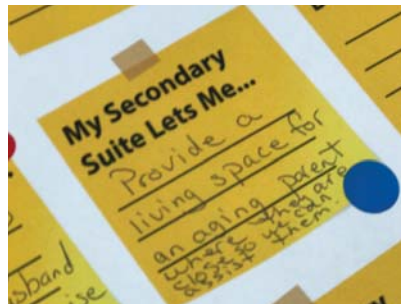 My Secondary
Suite Lets Me...
Provide a
living space for
an aging parent
where they are
close so we can
assist them.
sband
ise